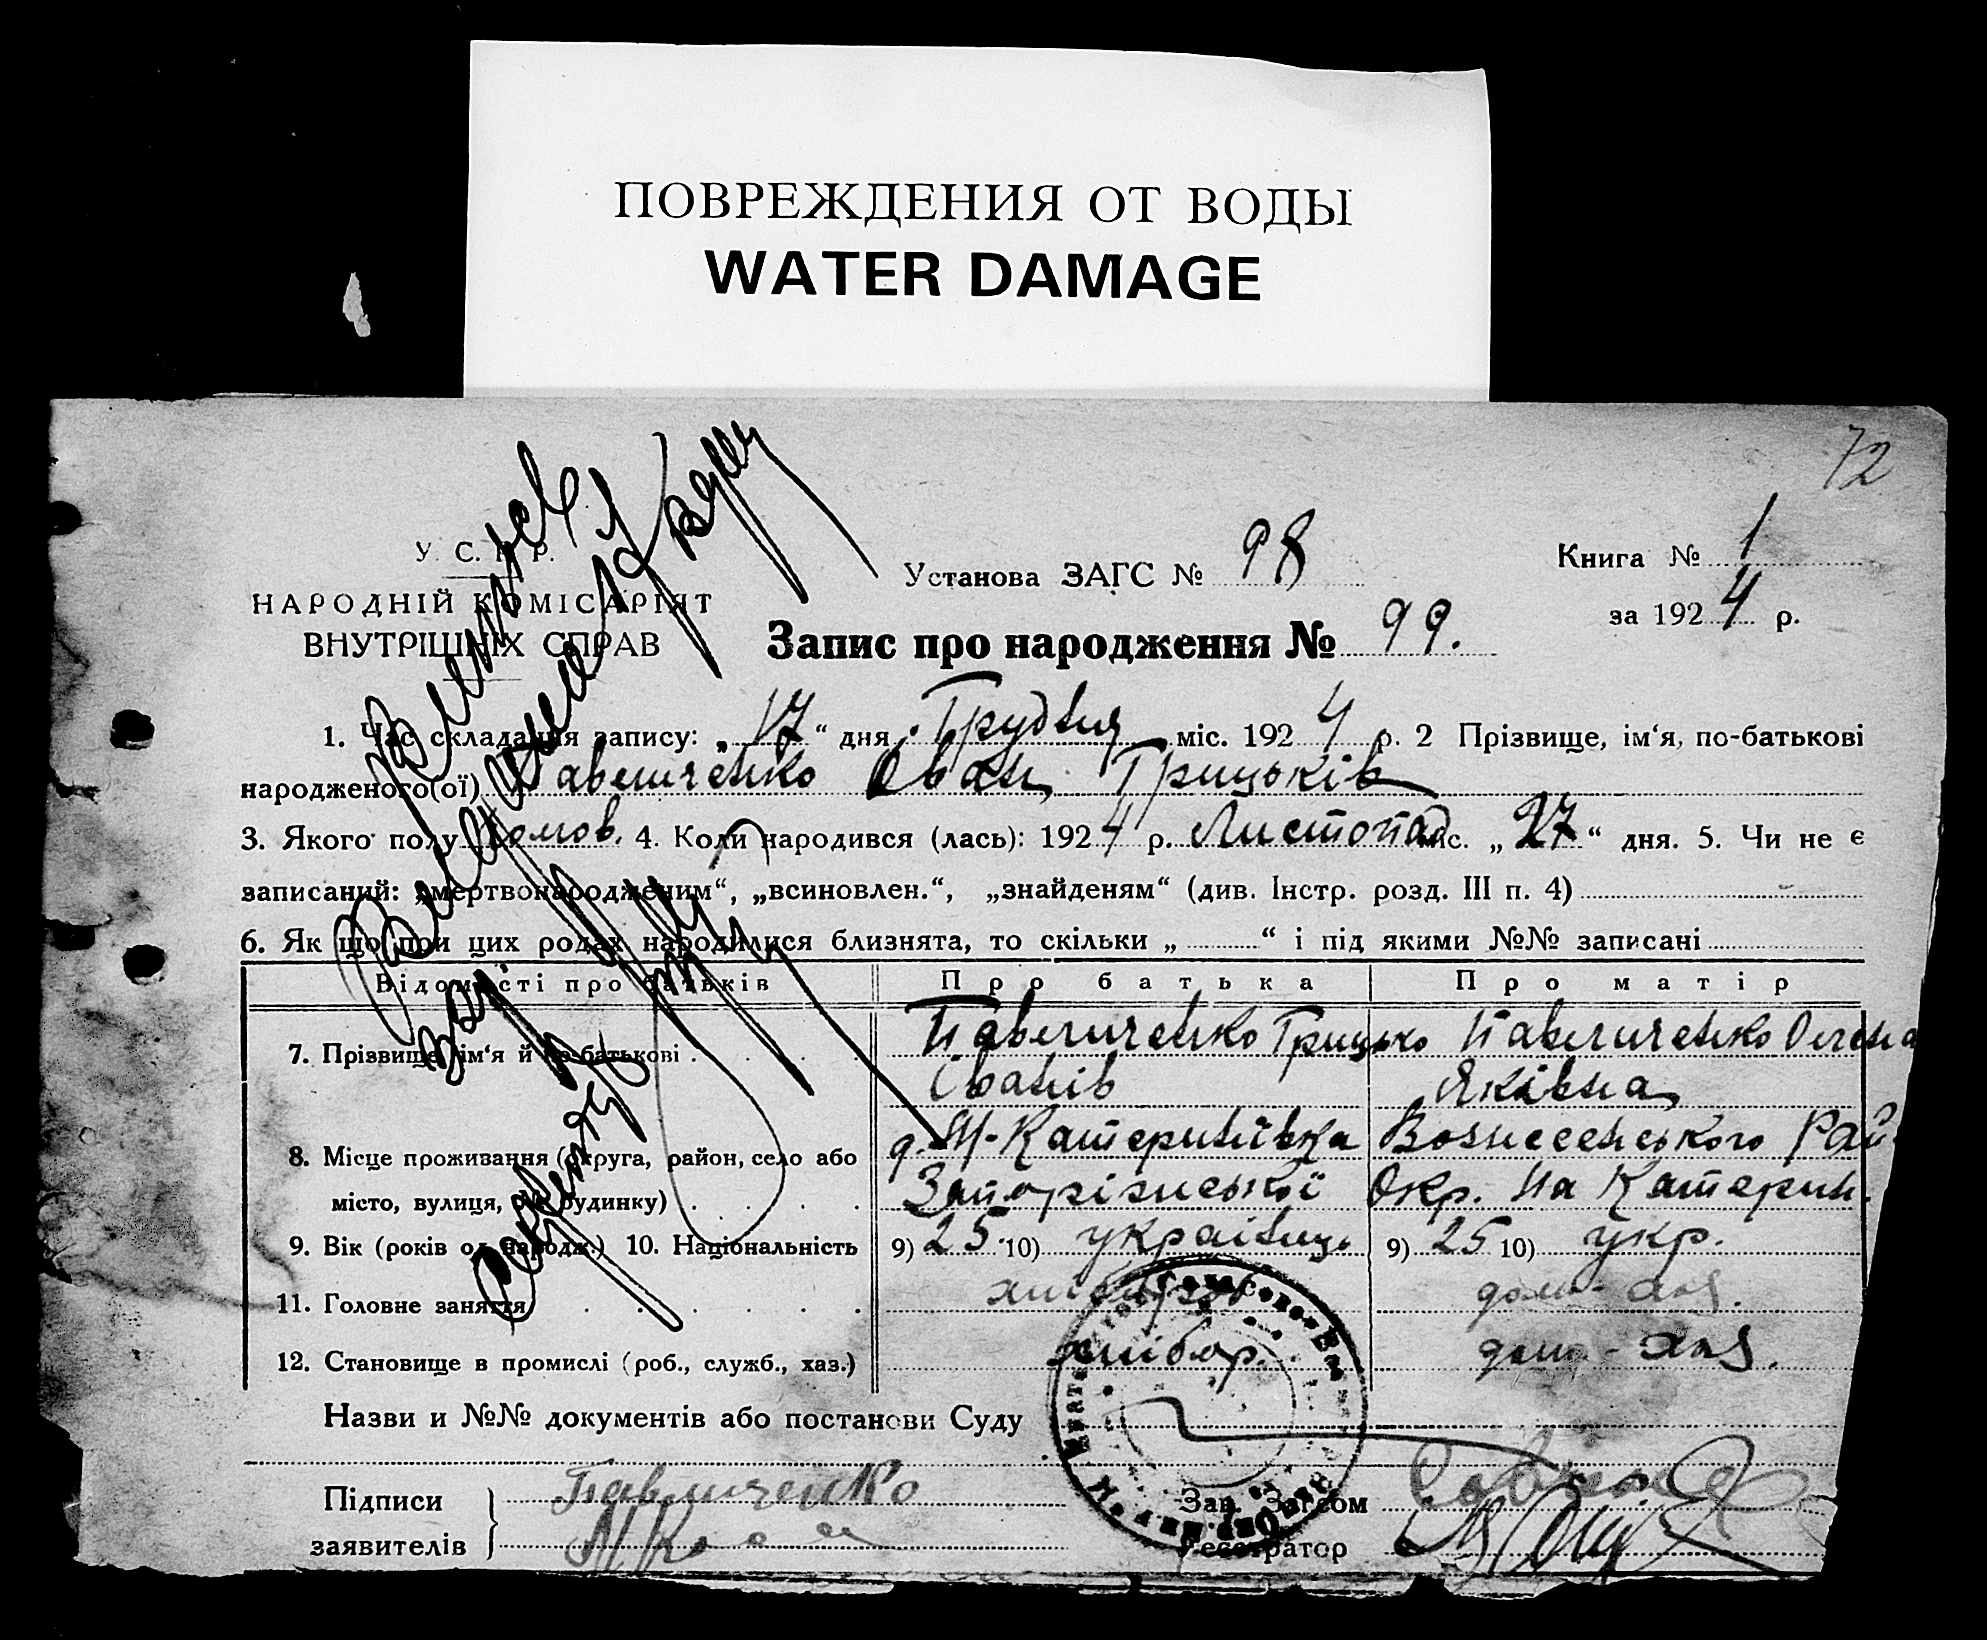 ПОВРЕЖДЕНИЯ ОТ ВОДЫ
WATER DAMAGE
72
У. С. Р. Р.
НАРОДНІЙ КОМІСАРІЯТ
ВНУТРІШНІХ СПРАВ
Установа ЗАГС № 98
Книга № 1
за 1924 р.
Запис про народження № 99.
1. Час складання запису: „17“ дня Грудня міс. 1924 р. 2 Прізвище, ім‘я, по-батькові
народженого(ої) Павличенко Іван Грицьків
3. Якого полу 4. Коли народився (лась): 1924 р. Листопад міс. „27“ дня. 5. Чи не є
записаний: „мертвонародженим“, „всиновлен.“, „знайденям“ (див. Інстр. розд. III п. 4)
6. Як що при цих родах народилися близнята, то скільки „ “ і під якими №№ записані
Відомості про батьків Про батька Про матір
7. Прізвище, ім‘я й по-батькові Павличенко Грицько Павличенко Олена
Іванів Яківна
8. Місце проживання (округа, район, село або М-Катеринівка Вознесенського Рай
місто, вулиця, № будинку) Запорізської Окр. на Катерин.
9. Вік (років од народж.) 10. Національність 9) 25 10) українець 9) 25 10) укр.
11. Головне заняття хлібороб дом-хаз.
12. Становище в промислі (роб., служб., хаз.) хлібор. дом-хаз.
Назви и №№ документів або постанови Суду
Підписи Павличенко Зав. Загсом
заявителів Реєстратор